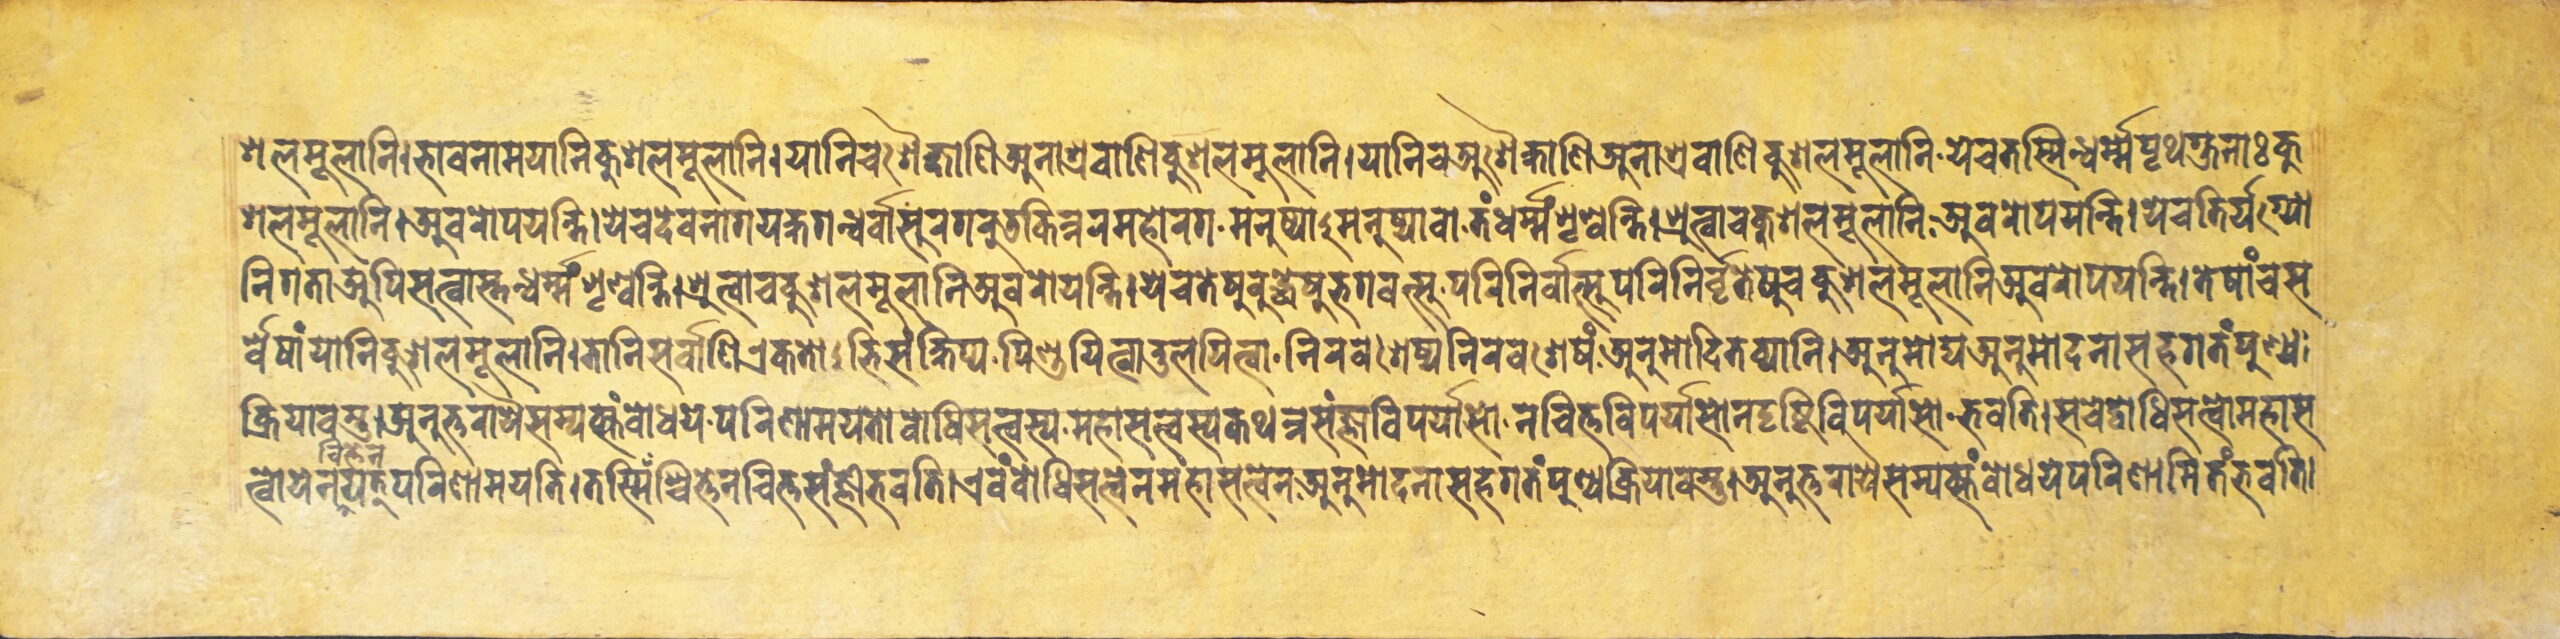 शलमूलानि।भावनामयानिकुशलमूलानि।यानिचशैक्षाणिअनाश्रवाणिकुशलमूलानि।यानिचअशैक्षाणिअनाश्रवाणिकुशलमूलानि·येचतस्मिन्धर्म्मेपृथग्जनाःकु
शलमूलानि।अवरोपयन्ति।येचदेवनागयक्षगन्धर्वासुरगरुडकिन्नरमहोरग·मनुष्याऽमनुष्यावा·तंधर्म्मंशृण्वन्ति।श्रुत्वाचकुशलमूलानि·अवरोपयन्ति।येचतिर्यग्यो
निगताअपिसत्वास्तन्धर्म्मंशृण्वन्ति।श्रुत्वाचकुशलमूलानिअवरोयन्ति।येचतेषुबुद्धेषुभगवत्सु·परिनिर्वात्सुपरिनिर्वृतेषुचकुशलमूलानिअवरोपयन्ति।तेषांचस
र्वेषांयानिकुशलमूलानि।तानिसर्वाणिएकतोऽभिसंक्षिप्य·पिण्डयित्वातुलयित्वा·निरवशेष्यनिरवशेषं·अनुमोदितव्यानि।अनुमोद्यअनुमोदनासहगतंपुण्य
क्रियावस्तु।अनुत्तरायैसम्यक्संबोधये·परिणामयतोबोधिसत्वस्य·महासत्वस्यकथन्नसंज्ञाविपर्यासो·नचित्तविपर्यासोनदृष्टिविपर्यासो·भवति।सचेद्बोधिसत्वोमहास
चित्तेन
त्वोयेनयत्परिणामयति।तस्मिंश्चित्तेनचित्तसंज्ञीभवति।एवंबोधिसत्वेनमहासत्वेन·अनुमोदनासहगतंपुण्यक्रियावस्तु।अनुत्तरायैसम्यक्संबोधयेपरिणामितंभवति।